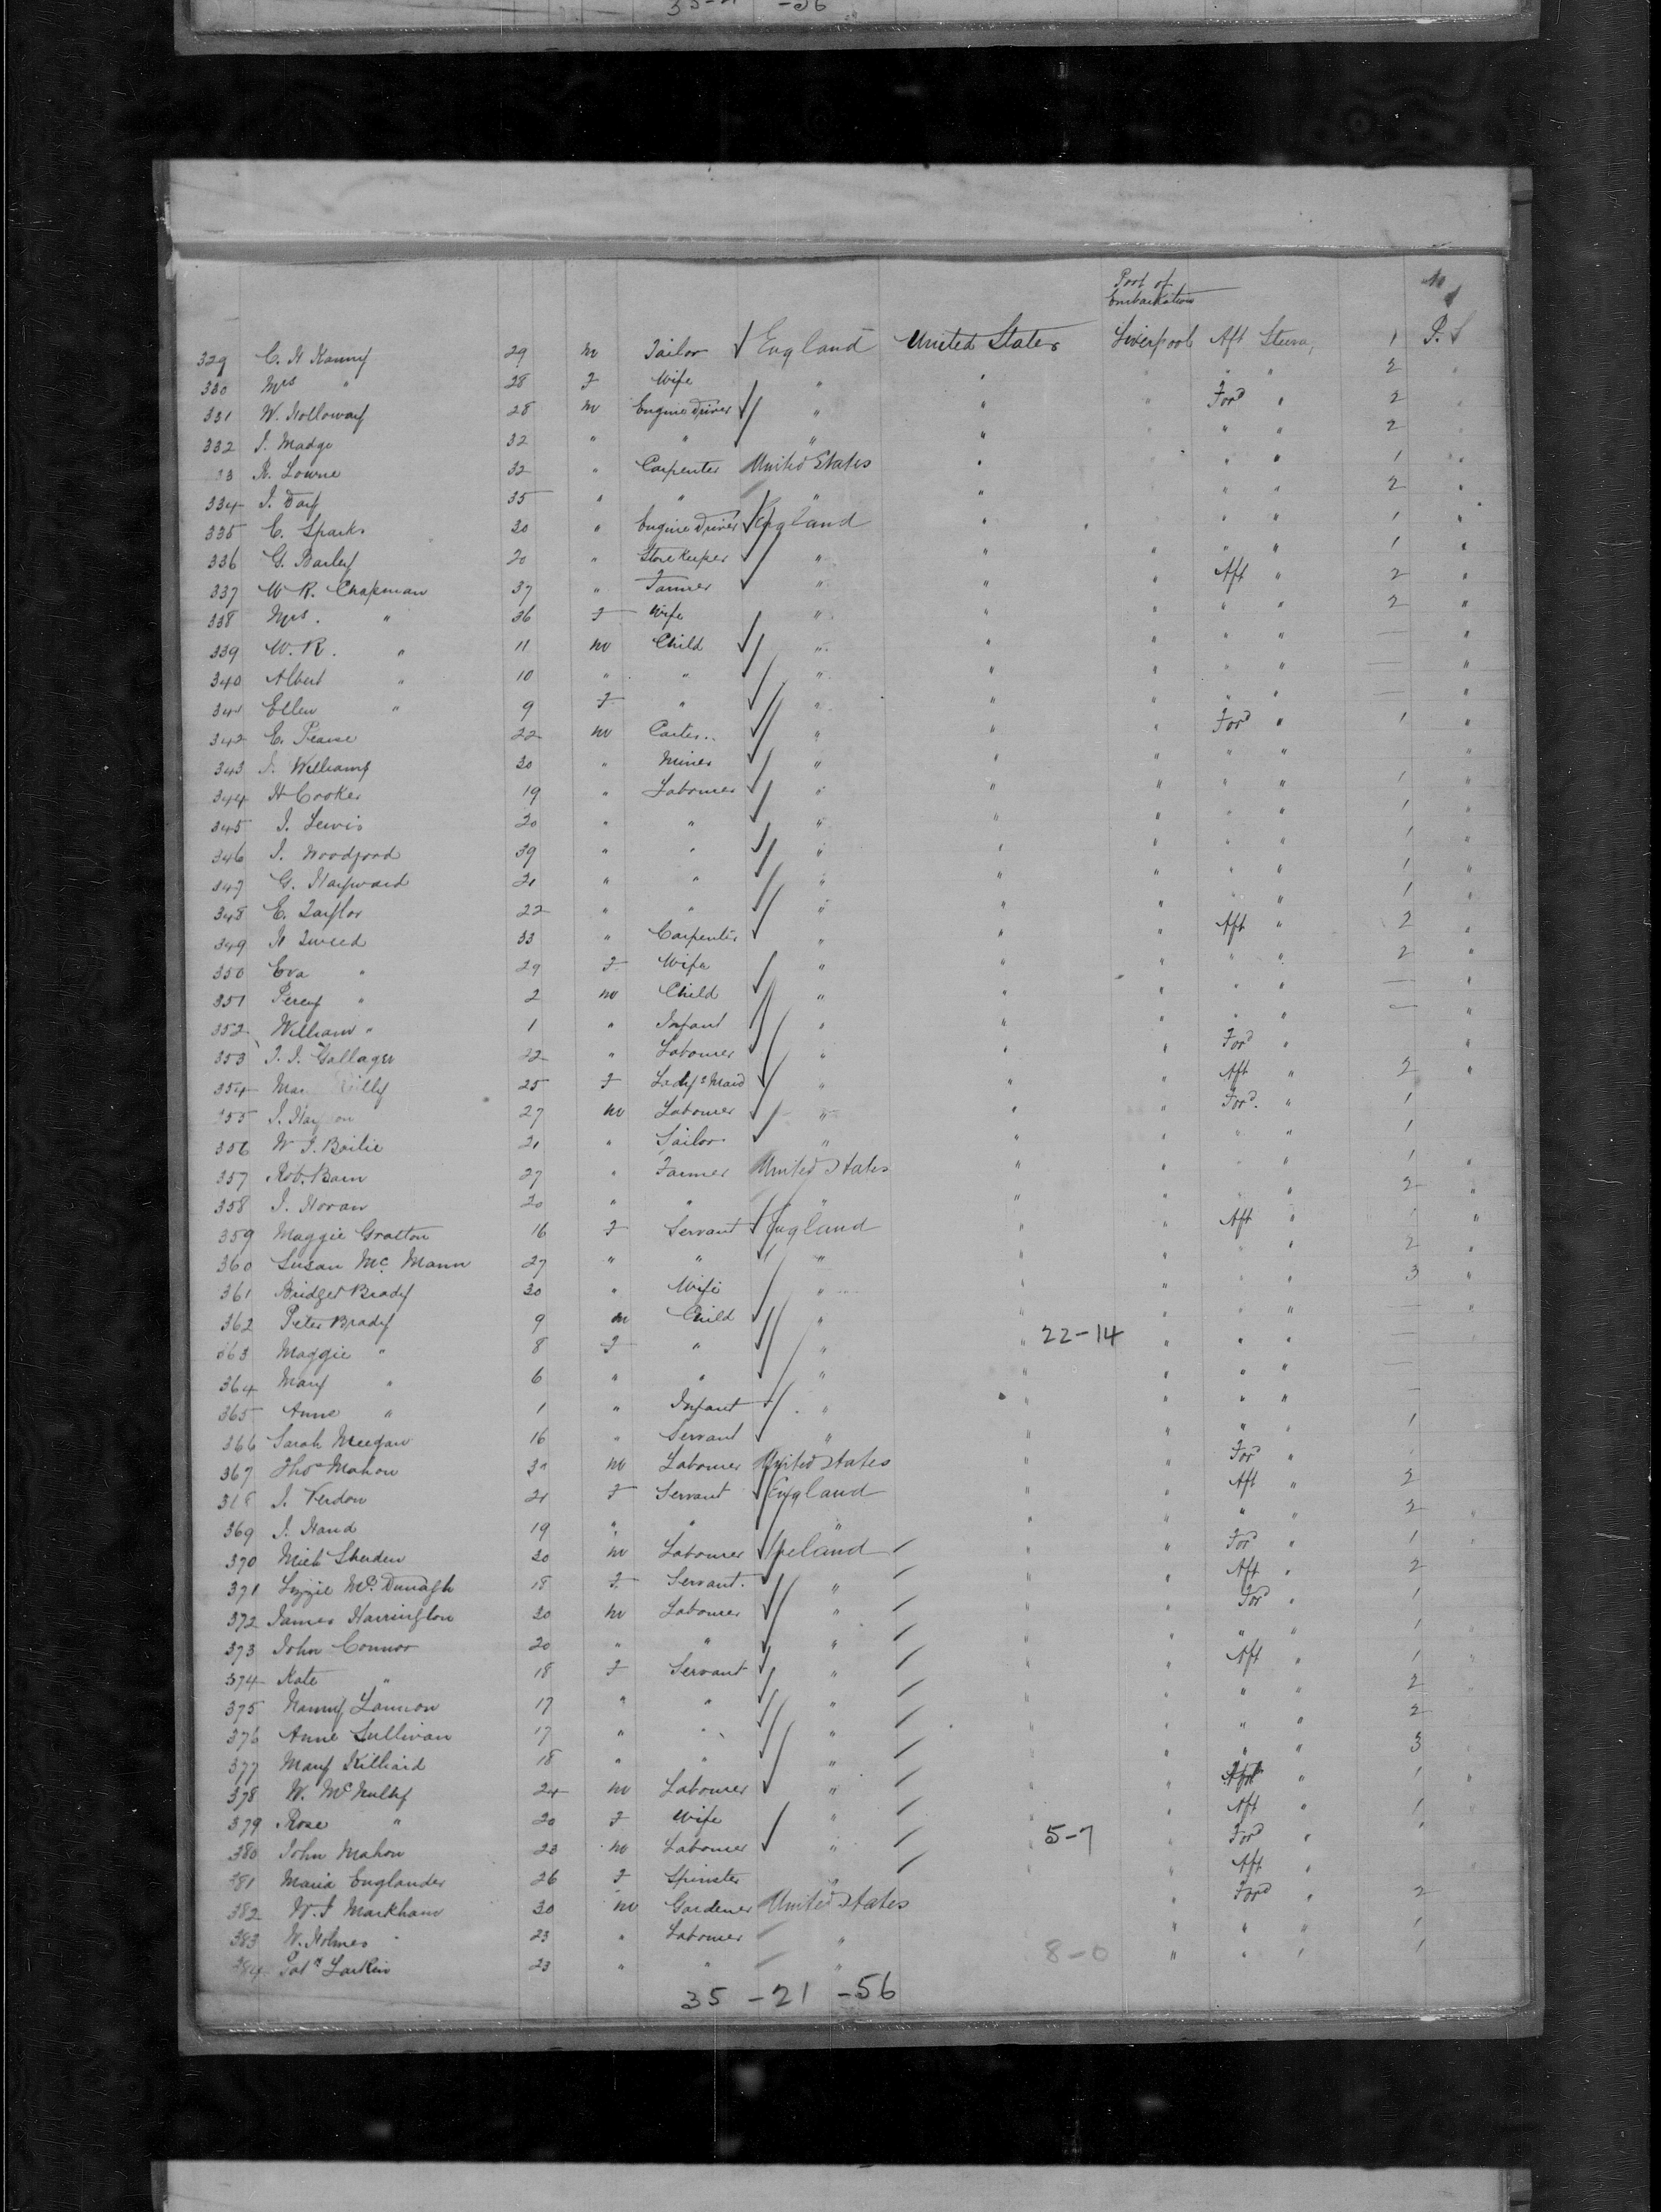 35-21 -56
Port of
Embarkation
329 C. H Kanny 29 m Tailor England United States Liverpool Aft Steera, 1 P. S
330 Mrs " 28 F Wife " " " " " 2 "
331 W. Holloway 28 m Engine Driver " " " Ford " 2 "
332 J. Madge 32 " " " " " " " 2 "
33 R. Lowne 32 " Carpenter United States " " " " 1 "
334 J. Day 35 " " " " " " " 2 "
335 C. Spark. 20 " Engine Driver England " " " " 1 "
336 G. Barley 20 " Store Keeper " " " " " 1 "
337 W R. Chapman 37 " Farmer " " " Aft " 2 "
338 Mrs. " 36 F Wife " " " " " 2 "
339 W. R. " 11 m Child " " " " " — "
340 Albert " 10 " " " " " " " — "
341 Ellen " 9 F " " " " " " — "
342 E. Pearse 22 m Carter.. " " " Ford " 1 "
343 J. Williams 30 " Miner " " " " " "
344 H Crooker 19 " Labourer " " " " " 1 "
345 J. Lewis 20 " " " " " " " 1 "
346 J. Woodford 39 " " " " " " " 1 "
347 G. Hayward 21 " " " " " " " 1 "
348 E. Taylor 22 " " " " " " " 1 "
349 H Tweed 33 " Carpenter " " " Aft " 2 "
350 Eva " 29 F Wife " " " " " 2 "
351 Percy " 2 m Child " " " " " — "
352 William " 1 " Infant " " " " " — "
353 J. J. Gallager 22 " Labourer " " " Ford " "
354 Ma 25 F Lady's Maid " " " Aft " 2 "
355 J. 27 m Labourer " " " Ford. " 1
356 W J. Bailie 21 " Sailor " " " " " 1
357 Rob. Bain 27 " Farmer United States " " " " 1 "
358 J. Horan 20 " " " " " " " 2 "
359 Maggie Gratton 16 F Servant England " " Aft " 1 "
360 Susan Mc Mann 27 " " " " " " " 2 "
361 Bridget Brady 30 " Wife " " " " " 3 "
362 Peter Brady 9 m Child " " " " " — "
363 Maggie " 8 F " " " 22-14 " " " —
364 Mary " 6 " " " " " " " —
365 Anne " 1 " Infant " " " " " —
366 Sarah Meegan 16 " Servant " " " " " 1
367 Thos Mahon 30 m Labourer United States " " Ford " 1
368 J. Verdon 21 F Servant England " " Aft " 2
369 J. Hand 19 " " " " " " " 2 "
370 Mich Sheriden 20 m Labourer Ireland " " Ford " 1 "
371 Lizzie McDunagh 18 F. Servant. " " " Aft " 2
372 James Harrington 20 m Labourer " " " For " 1
373 John Connor 20 " " " " " " " 1 "
374 Kate " 18 F Servant " " " Aft " 1 "
375 Nanny Lannon 17 " " " " " " " 2 "
376 Anne Sullivan 17 " " " " " " " 2
377 Mary Killiard 18 " " " " " " " 3
378 W. McNulty 24 m Labourer " " " Aft " 1 "
379 Rose " 20 F Wife " " " Aft " 1 "
380 John Mahon 23 m Labourer " " 5-7 " Ford " 1
381 Maria Englander 26 F Spinster " " " Aft "
382 W. J Markham 30 m Gardener United States " Ford " 2
383 W. Holmes 23 " Labourer " " " " 1
384 Patk Larkin 23 " " " 8-0 " " " 1
35 -21 -56